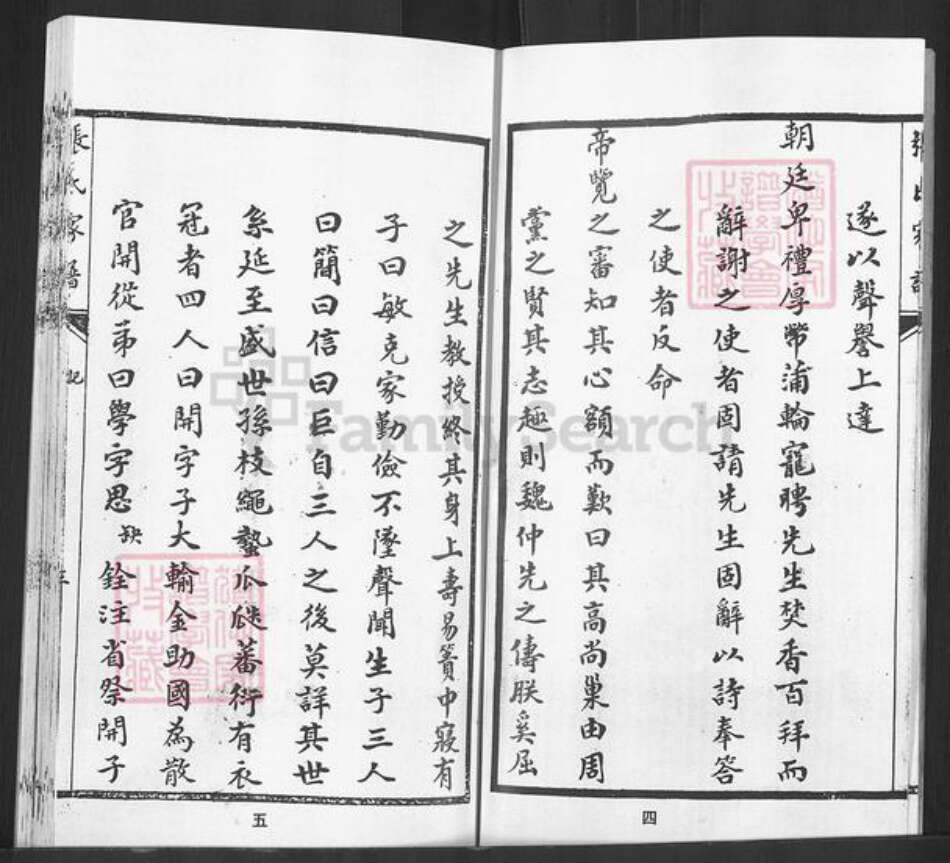 遂以聲譽上達
朝廷卑禮厚幣蒲輪寵聘先生焚香百拜而
辭謝之使者固請先生固辭以詩奉答
之使者反命
帝覽之審知其心額而歎曰其高尚巢由周
黨之賢其志趣則魏仲先之儔朕奚屈
四
之先生教授終其身上壽易簀中寢有
子曰敏克家勤儉不墜聲聞生子三人
曰簡曰信曰巨自三人之後莫詳其世
系延至盛世孫枝繩蟄瓜瓞蕃衍有衣
冠者四人曰開字子大輸金助國為散
官開從弟曰學字思 缺 銓注省祭開子
張氏家譜 記 三
五
FamilySearch